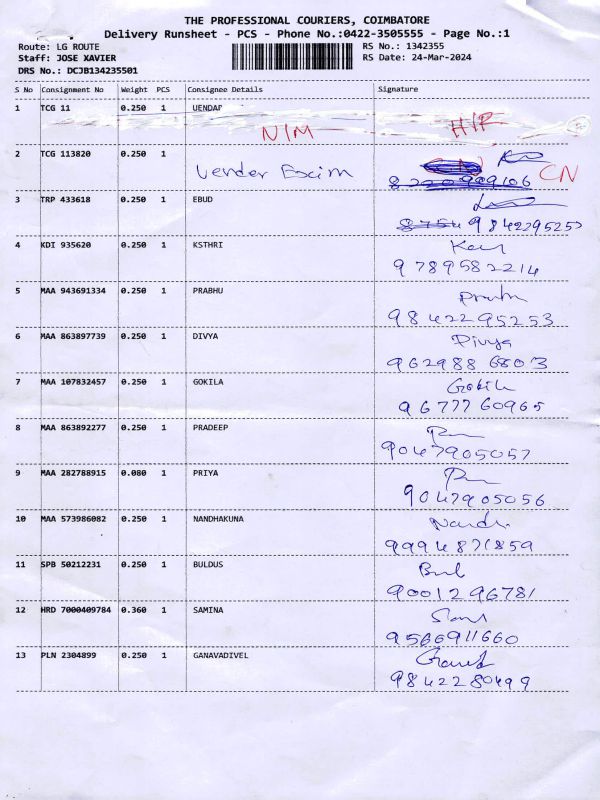 THE PROFESSIONAL COURIERS, COIMBATORE
Delivery Runsheet - PCS - Phone No.:0422-3505555 - Page No.:1
Route: LG ROUTE
Staff: JOSE XAVIER
DRS No.: DCJB134235501
RS No.: 1342355
RS Date: 24-Mar-2024
S No Consignment No Weight PCS Consignee Details Signature
1 TCG 11 0.250 1 UENDAR
NIM
2 TCG 113820 0.250 1 Vender Exim CN
3 TRP 433618 0.250 1 EBUD
9842295253
4 KDI 935620 0.250 1 KSTHRI
9789582214
5 MAA 943691334 0.250 1 PRABHU Prabhu
9842295253
6 MAA 863897739 0.250 1 DIVYA Divya
9629886803
7 MAA 107832457 0.250 1 GOKILA Gokila
9677760965
8 MAA 863892277 0.250 1 PRADEEP
9047905057
9 MAA 282788915 0.080 1 PRIYA
9047905056
10 MAA 573986082 0.250 1 NANDHAKUNA
9994871859
11 SPB 50212231 0.250 1 BULDUS
9001296781
12 HRD 7000409784 0.360 1 SAMINA
9566911660
13 PLN 2304899 0.250 1 GANAVADIVEL
9842280499